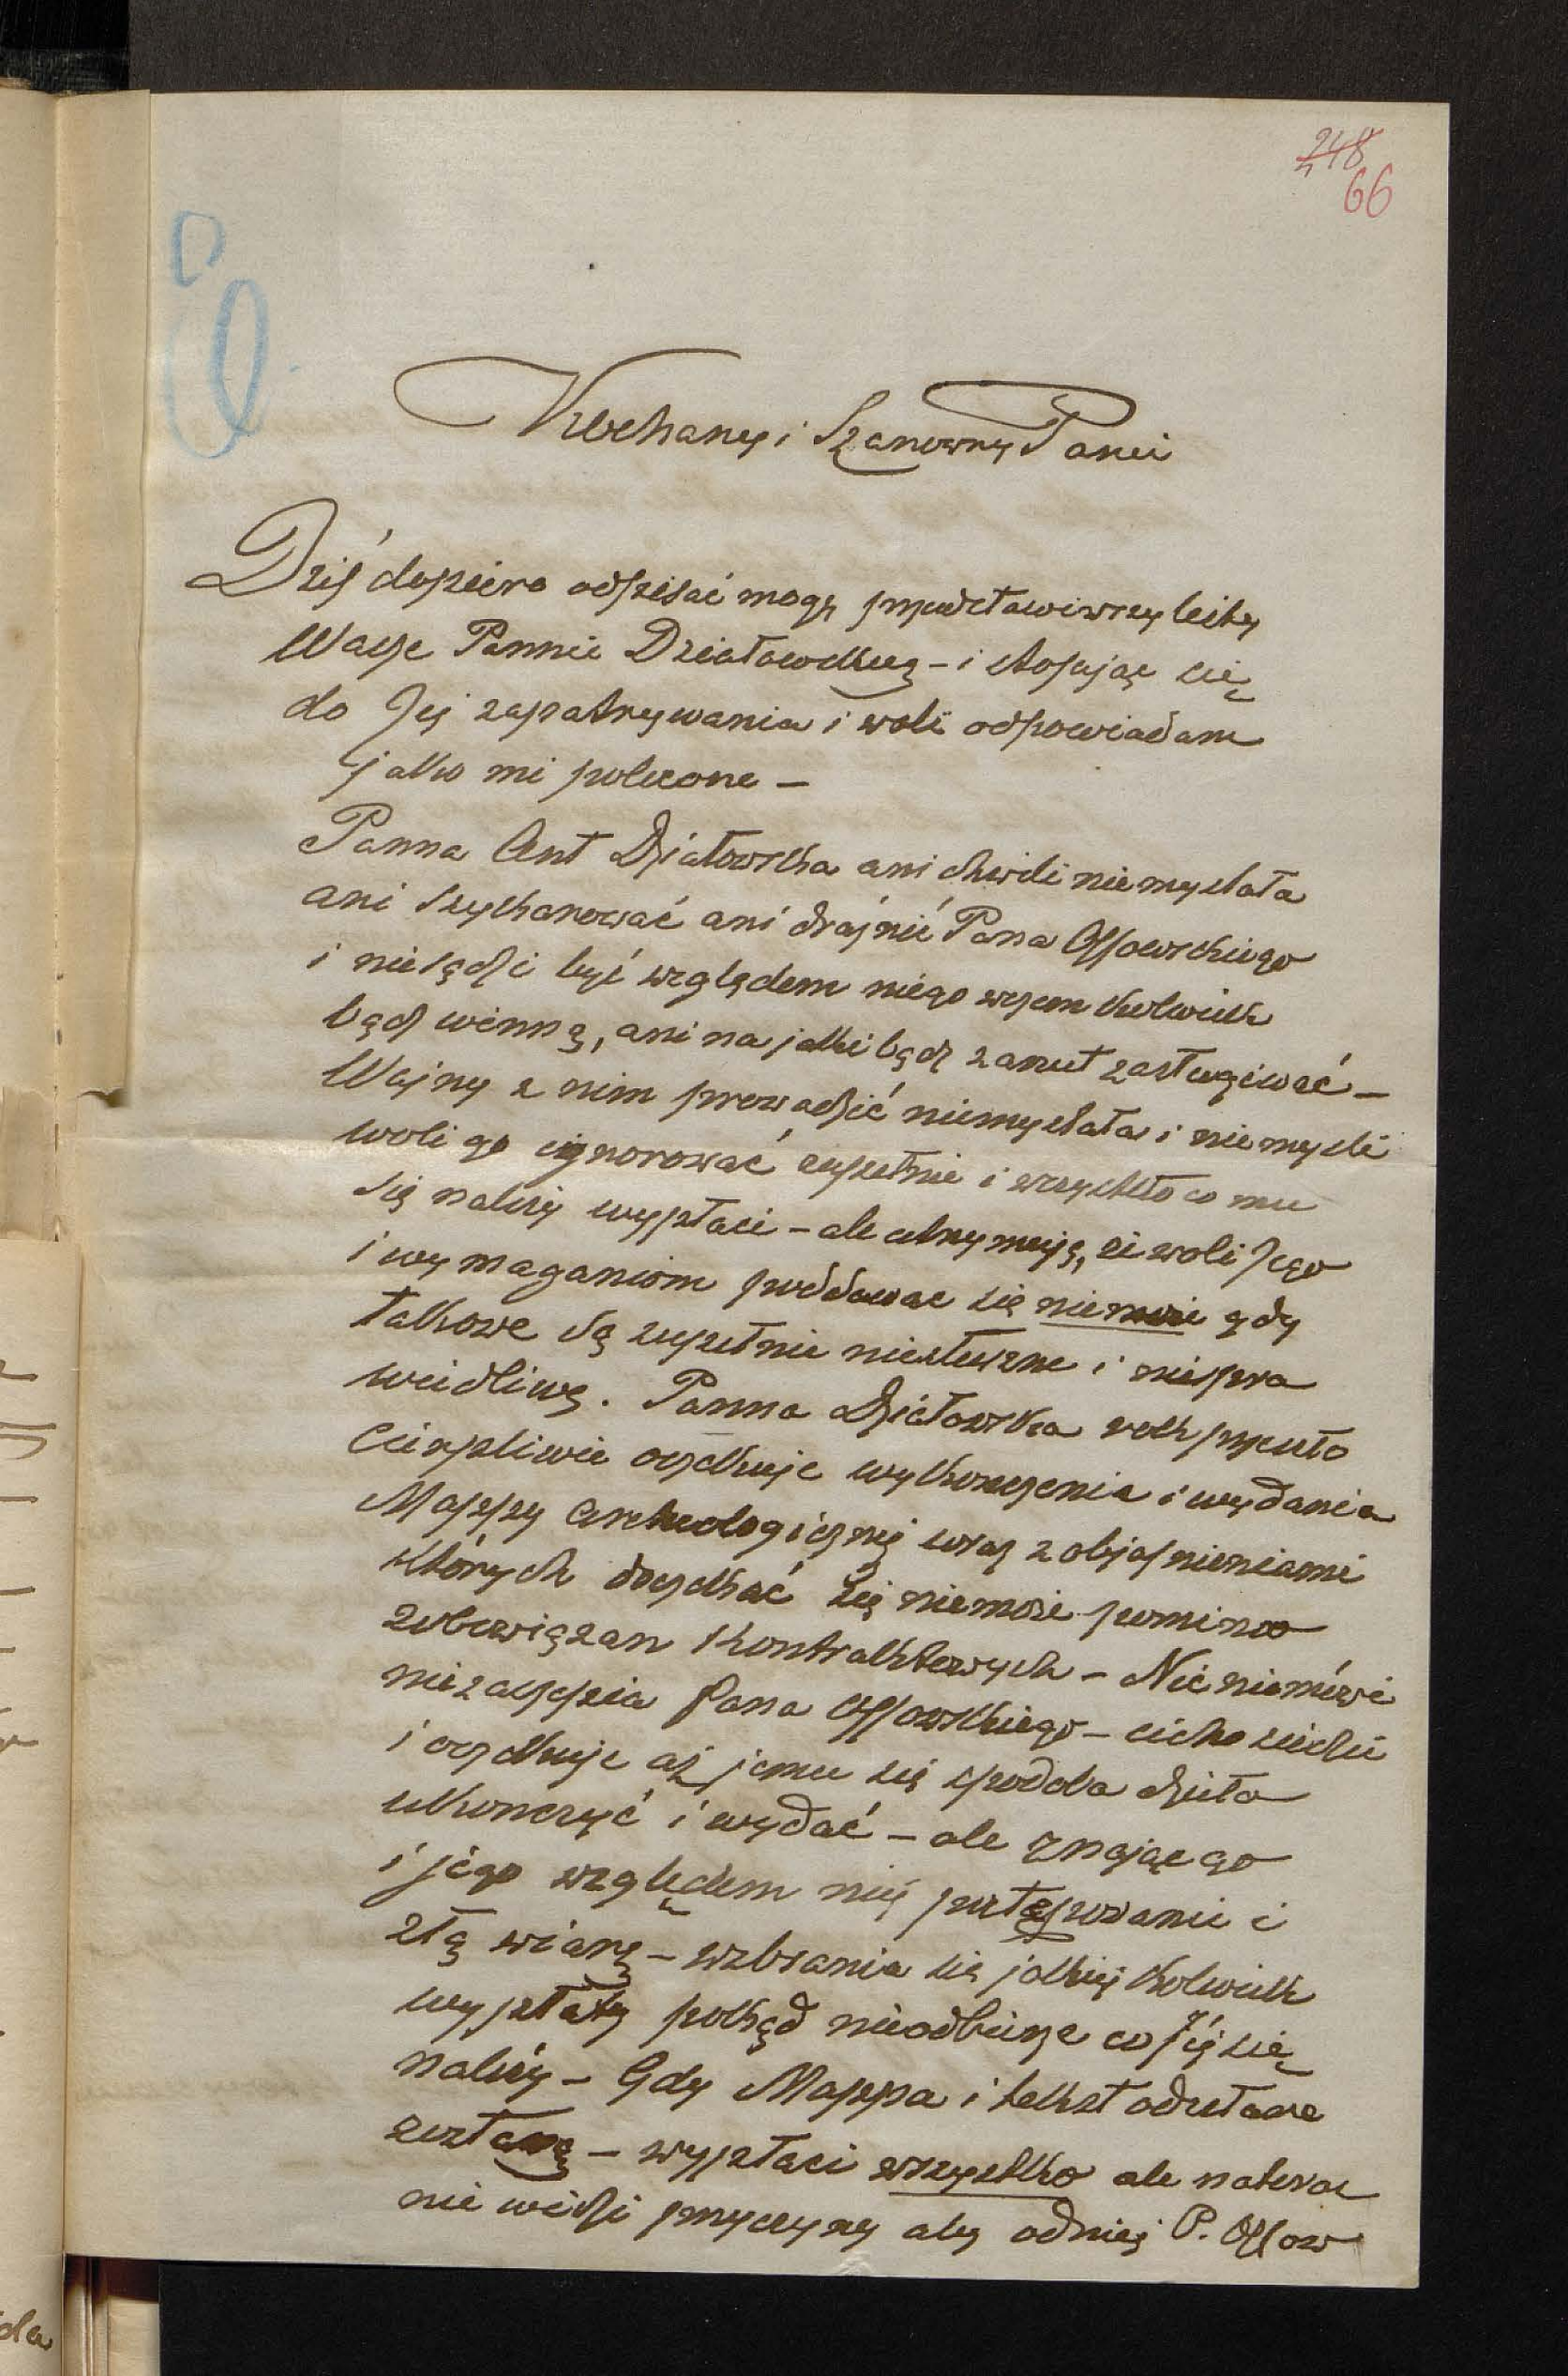 248
66
Kochany i Szanowny Panie
Dziś dopiero odpisać mogę przedstawiwszy listy
Wasze Pannie Działowskieg - i stosując się
do Jej zapatrywania i woli odpowiadam
jako mi polecone -
Panna Ant Działowska ani chwili nie myslała
ani szykanować ani drażnić Pana Ossowskiego
i niesądzi być względem niego wczem kolwiek
bądź winną, ani na jakibądz zarzut zasługiwać -
Wojny z nim prowadzić niemyslała i nie mysli
woli go ignorować zupełnie i wszystko co mu
się należy wypłaci - ale utrzymuję, że woli Jego
i wymaganiom poddawac się niemoże gdy
takowe są zupełnie niesłuszne i niespra
wiedliwe. Panna Działowska rok przeszło
Cierpliwie oczekuje wykonczenia i wydania
Mappy archeologicznej wraz z objasnieniami
których doczekać się niemoże pomimo
zobowiązan Kontraktowych - Nic niemówi
niezaczepia Pana Ossowskiego - cicho siedzi
i oczekuje aż jemu się spodoba dzieło
ukonczyć i wydać - ale znając go
i jego względem niej postępowanie i
złą wiarę - wzbrania się jakiej kolwiek
wypłaty pokąd nieodbierze co Jéj się
należy - Gdy Mappa i tekst odesłane
zostaną - wypłaci wszystko ale nateraz
nie widzi przyczyny aby odniej P. Ossow
da